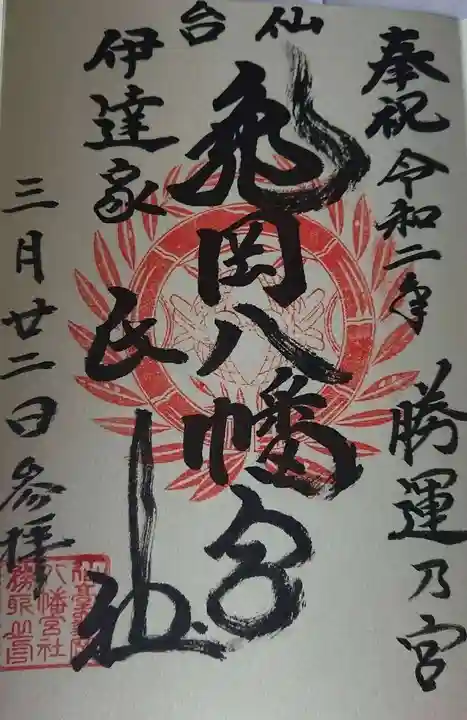 奉祝 令和二年
勝運乃宮
仙台
亀岡八幡宮
伊達家
氏神社
三月廿二日参拝